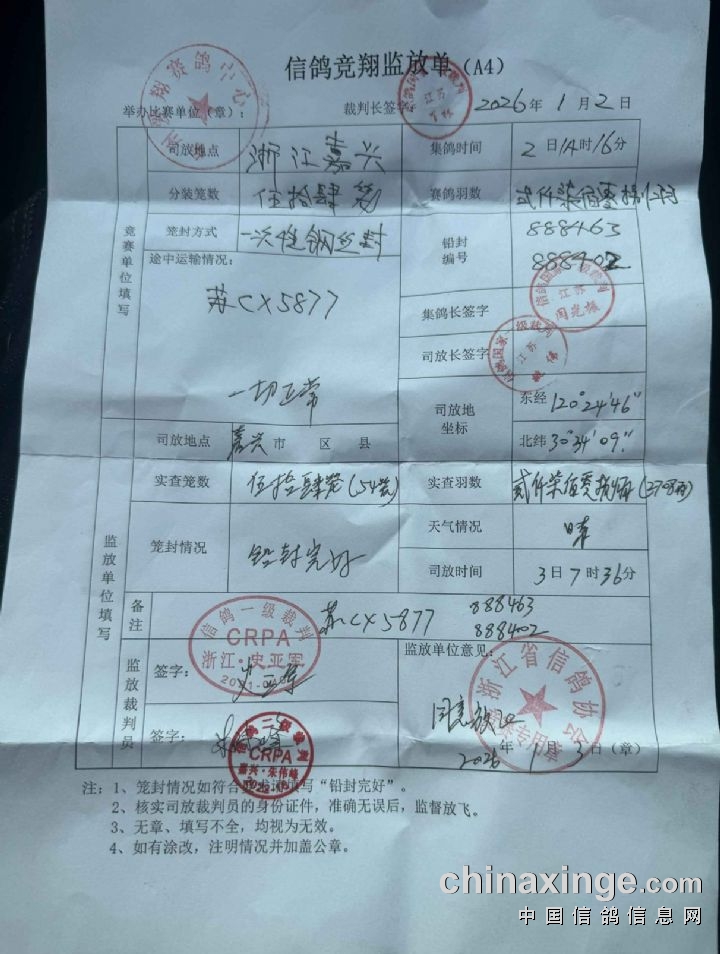 信鸽竞翔监放单(A4)
举办比赛单位(章): 裁判长签字: 2026年1月2日
竞赛单位填写
司放地点 浙江嘉兴 集鸽时间 2日14时16分
分装笼数 伍拾肆笼 赛鸽羽数
笼封方式 一次性钢丝封 铅封编号 888463
888402
途中运输情况:
苏CX5877
一切正常
集鸽长签字
司放长签字
司放地坐标 东经 120°24′46″
北纬 30°34′09″
监放单位填写
司放地点 嘉兴市 区 县
实查笼数 伍拾肆笼(54笼) 实查羽数
笼封情况 铅封完好 天气情况 晴
司放时间 3日7时36分
备注 苏CX5877 888463
888402
监放裁判员
签字:
签字:
监放单位意见:
同意放飞
2026年1月3日(章)
信鸽一级裁判
CRPA
浙江·史亚军
CRPA
嘉兴·朱伟峰
浙江省信鸽协会
注: 1、笼封情况如符合要求请填写“铅封完好”。
2、核实司放裁判员的身份证件,准确无误后,监督放飞。
3、无章、填写不全,均视为无效。
4、如有涂改,注明情况并加盖公章。
chinaxinge.com
中国信鸽信息网